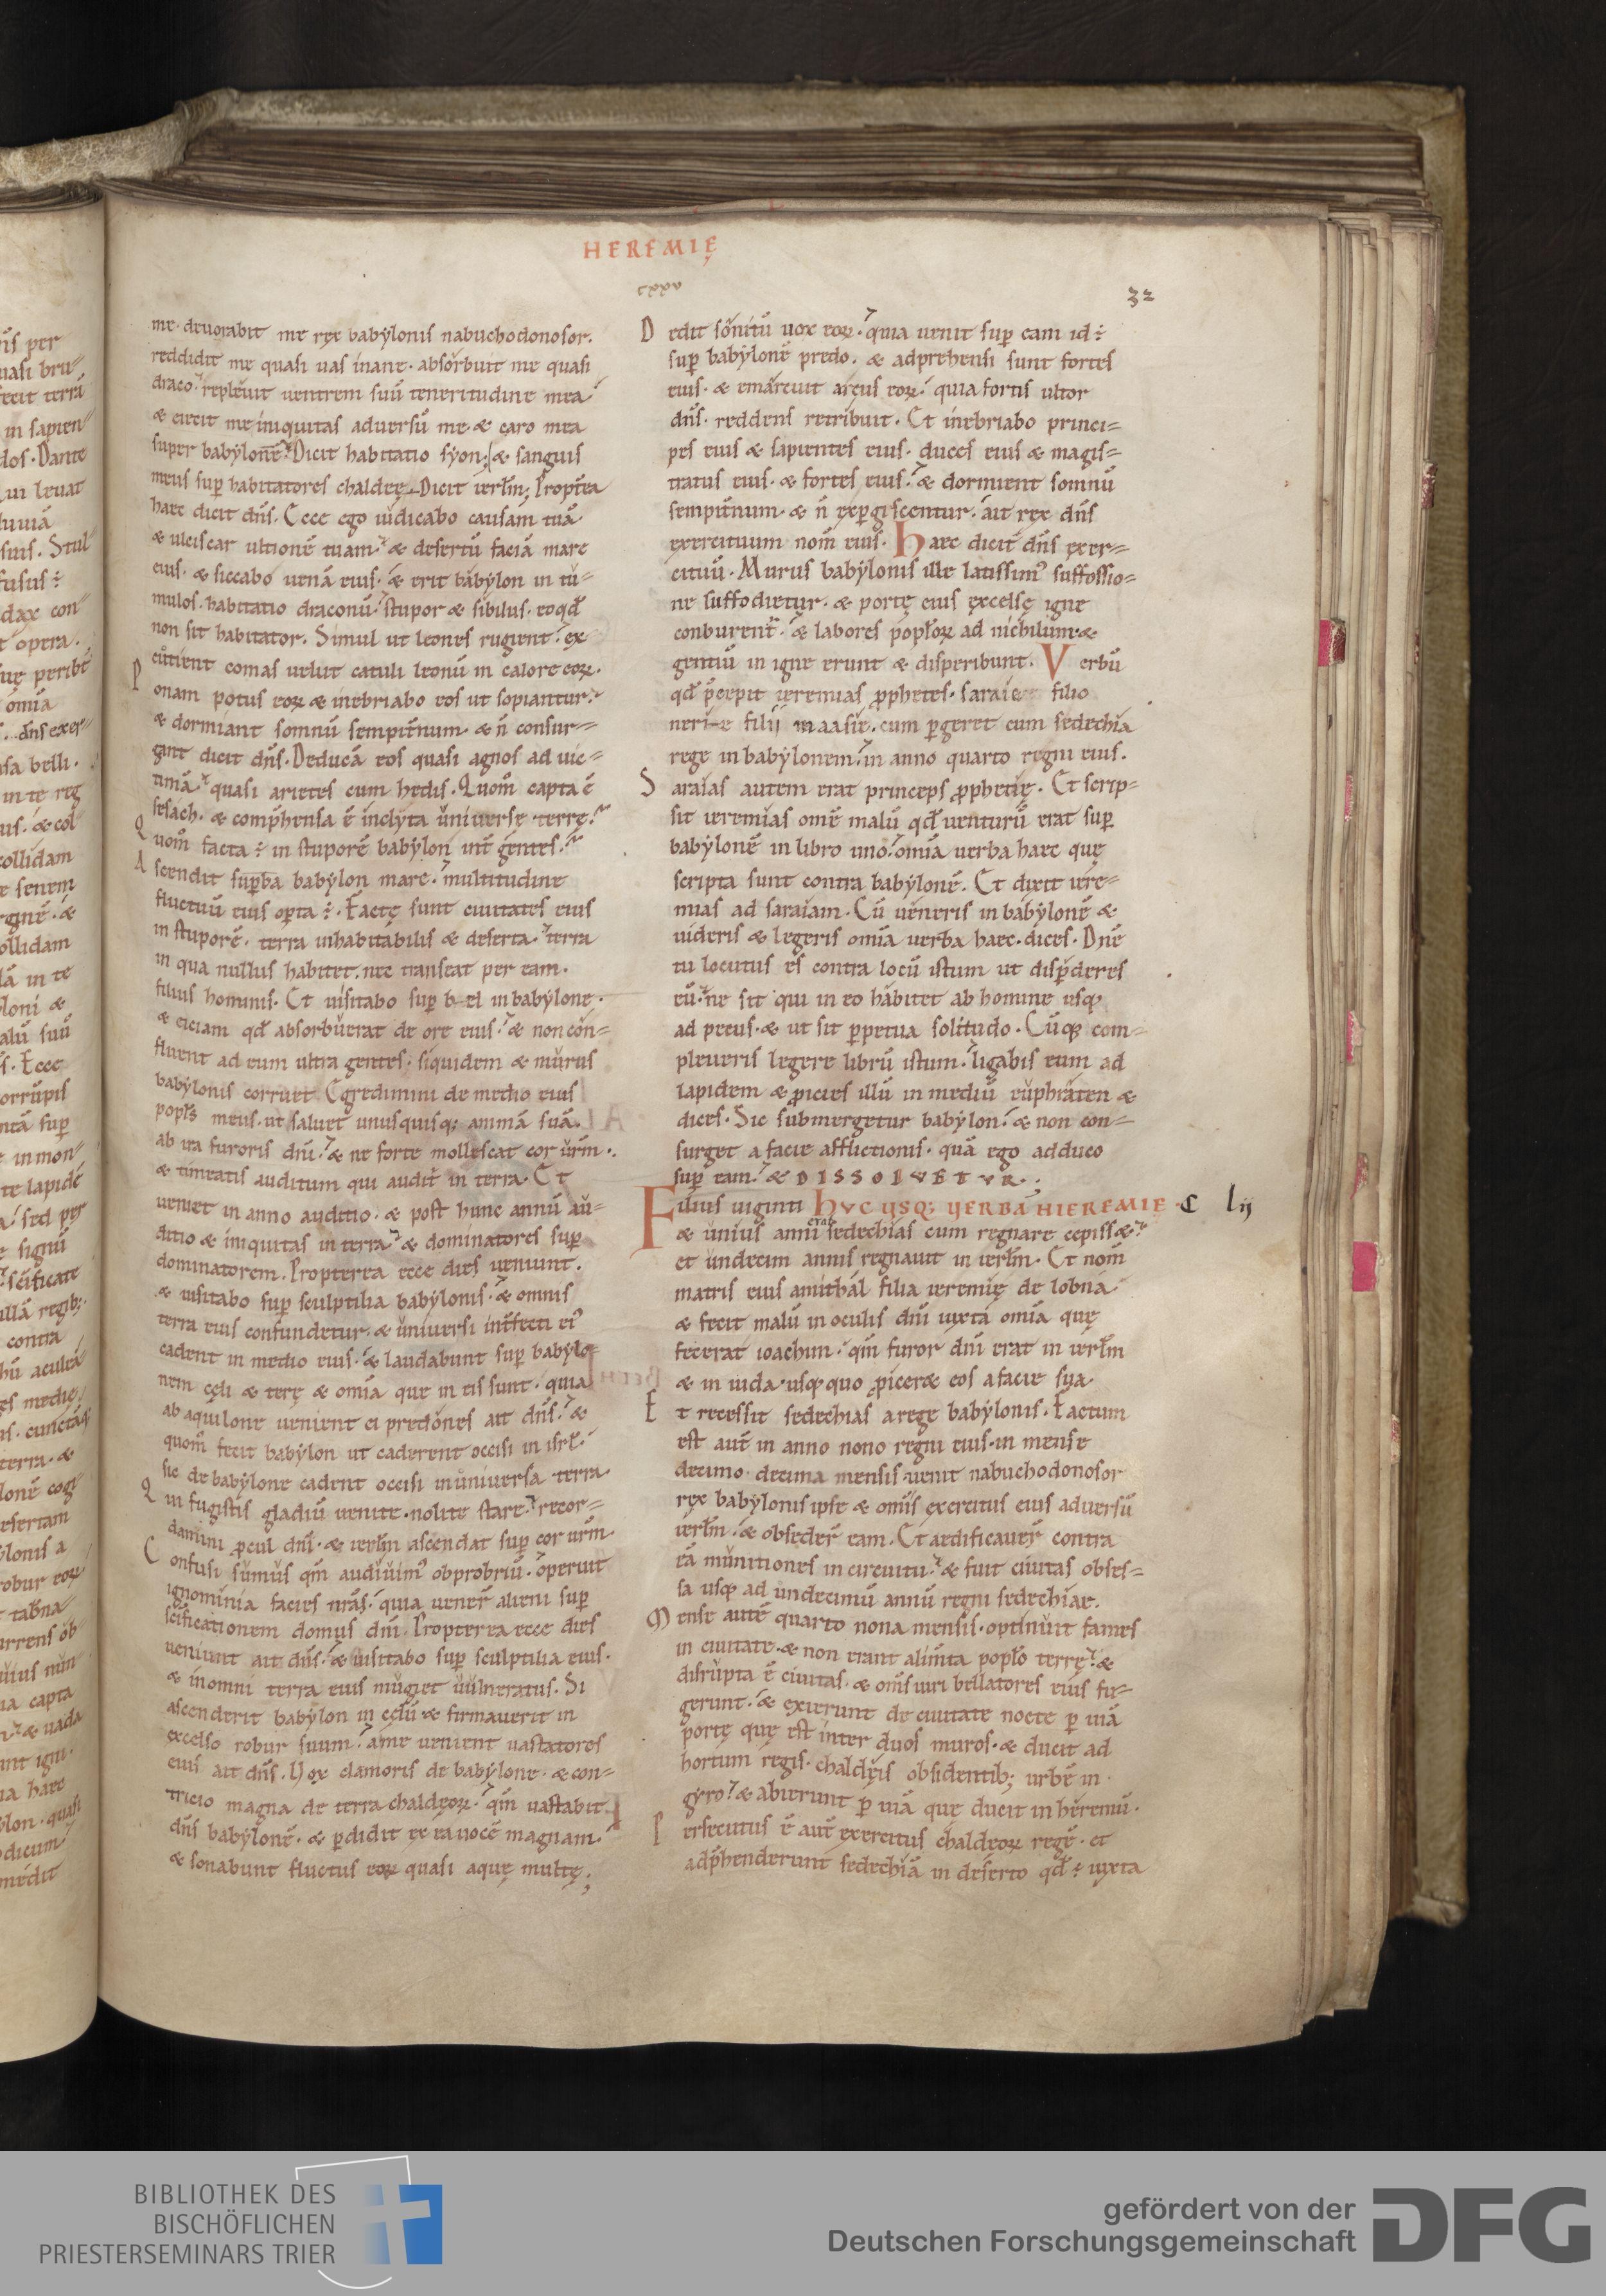 HEREMIĘ
cxxv
32
me. deuorabit me rex babylonis nabuchodonosor.
reddidit me quasi uas inane. absorbuit me quasi
draco. repleuit uentrem suū teneritudine mea
& eiecit me iniquitas aduersū me. & caro mea
super babylonē. Dicit habitatio syon. & sanguis
meus sup habitatores chaldeę. Dicit ierlm; Propterea
haec dicit dn̄s. Ecce ego iudicabo causam tuā
& ulciscar ultionē tuam. & desertū faciā mare
eius. & siccabo uenā eius. & erit babylon in tu-
mulos. habitatio draconū. stupor & sibilus. eo qd
non sit habitator. Simul ut leones rugient. ex
cutient comas uelut catuli leonū in calore eoꝝ.
Ponam potus eoꝝ & inebriabo eos ut sopiantur.
& dormiant somnū sempit̄num. & n̄ consur-
gant dicit dn̄s. Deducā eos quasi agnos ad uic-
timā. quasi arietes cum hedis. Quom̄ capta ē
sesach. & comp̄hensa ē inclyta uniuerse terrę.
Quom̄ facta ÷ in stuporē babylon int̄ gentes.
Ascendit sup̄ba babylon mare. multitudine
fluctuū eius op̄ta ÷. Factę sunt ciuitates eius
in stuporē. terra inhabitabilis & deserta. terra
in qua nullus habitet. nec transeat per eam.
filius hominis. Et uisitabo sup bel in babylone.
& eiciam qd absorbuerat de ore eius. & non con-
fluent ad eum ultra gentes. siquidem & murus
babylonis corruet. Egredimini de medio eius
popls meus. ut saluet unusquisq; animā suā.
ab ira furoris dn̄i. & ne forte mollescat cor ur̄m.
& timeatis auditum qui audit̄ in terra. Et
ueniet in anno auditio. & post hunc annū au-
ditio & iniquitas in terra. & dominatores sup
dominatorem. Propterea ecce dies ueniunt.
& uisitabo sup sculptilia babylonis. & omnis
terra eius confundetur. & uniuersi int̄fecti ei᾿
cadent in medio eius. & laudabunt sup babylo-
nem cęli & terę & omīa que in eis sunt. quia
ab aquilone uenient ei predones ait dn̄s. &
quom̄ fecit babylon ut caderent occisi in isrl.
sic de babylone cadent occisi in uniuersa terra.
Qui fugistis gladiū uenite. nolite stare. recor-
damini procul dn̄i. & ierlm ascendat sup cor ur̄m.
Confusi sumus qm̄ audiuim᾿ obprobriū. operuit
ignominia facies nr̄as. quia uener̄ alieni sup
scificationem domus dn̄i. Propterea ecce dies
ueniunt ait dn̄s. & uisitabo sup sculptilia eius.
& in omni terra eius mugiet uulneratus. Si
ascenderit babylon in cęlū & firmauerit in
excelso robur suum. a me uenient uastatores
eius ait dn̄s. Vox clamoris de babylone. & con-
tricio magna de terra chaldęoꝝ. qm̄ uastabit
dn̄s babylonē. & pdidit ex ea uocē magnam.
& sonabunt fluctus eoꝝ quasi aquę multę;
Dedit sonitū uox eoꝝ. quia uenit sup eam id ÷
sup babylonē predo. & adprehensi sunt fortes
eius. & emarcuit arcus eoꝝ. quia fortis ultor
dn̄s. reddens retribuit. Et inebriabo princi-
pes eius & sapientes eius. duces eius & magis-
tratus eius. & fortes eius. & dormient somnū
sempit̄num. & n̄ expgiscentur. ait rex dn̄s
exercituum nom̄ eius. Haec dicit dn̄s exer-
cituū. Murus babylonis ille latissim᾿ suffossio-
ne suffodietur. & portę eius excelsę igne
conburent̄. & labores poploꝝ ad nichilum. &
gentiū in igne erunt & disperibunt. Verbū
qd p̄cepit ieremias pphetes. saraie filio
nerie filij maasie. cum pgeret cum sedechia
rege in babylonem. in anno quarto regni eius.
Saraias autem erat princeps pphetię. Et scrip-
sit ieremias omē malū qd uenturū erat sup
babylonē in libro uno. omīa uerba haec quę
scripta sunt contra babylonē. Et dixit iere-
mias ad saraiam. Cū ueneris in babylonē &
uideris & legeris omīa uerba haec. dices. Dn̄e
tu locutus es contra locū istum ut disp̄deres
eū. ne sit qui in eo habitet ab homine usq;
ad pecus. & ut sit ppetua solitudo. Cūq; com-
pleueris legere librū istum. ligabis eum ad
lapidem & proicies illū in mediū euphraten &
dices. Sic submergetur babylon. & non con-
surget a facie afflictionis. quā ego adduco
sup eam. & DISSOLVETVR.;
Filius uiginti HVC VSQ; VERBA HIEREMIE. C lij
& unius anni erat sedechias cum regnare cepiss&.
et undecim annis regnauit in ierlm. Et nom̄
matris eius amithal filia ieremię de lobna.
& fecit malū in oculis dn̄i iuxta omīa quę
fecerat ioachim. qm̄ furor dn̄i erat in ierlm
& in iuda. usq; quo proicer& eos a facie sua.
Et recessit sedechias a rege babylonis. Factum
est aut̄ in anno nono regni eius. in mense
decimo. decima mensis. uenit nabuchodonosor
rex babylonis ipse & omīs exercitus eius aduersū
ierlm. & obseder̄ eam. Et aedificauer̄ contra
eā munitiones in circuitu. & fuit ciuitas obses-
sa usq; ad undecimū annū regni sedechiae.
Mense autē quarto nona mensis. optinuit fames
in ciuitate. & non erant alim̄ta poplo terrę. &
disrupta ē ciuitas. & om̄s uiri bellatores eius fu-
gerunt. & exierunt de ciuitate nocte p uiā
portę quę est inter duos muros. & ducit ad
hortum regis. chaldęis obsidentib; urbē in
gyro. & abierunt p uiā que ducit in heremū.
Persecutus ē aut̄ exercitus chaldeoꝝ regē. et
adp̄henderunt sedechiā in deserto qd ÷ iuxta
BIBLIOTHEK DES
BISCHÖFLICHEN
PRIESTERSEMINARS TRIER
gefördert von der
Deutschen Forschungsgemeinschaft
DFG